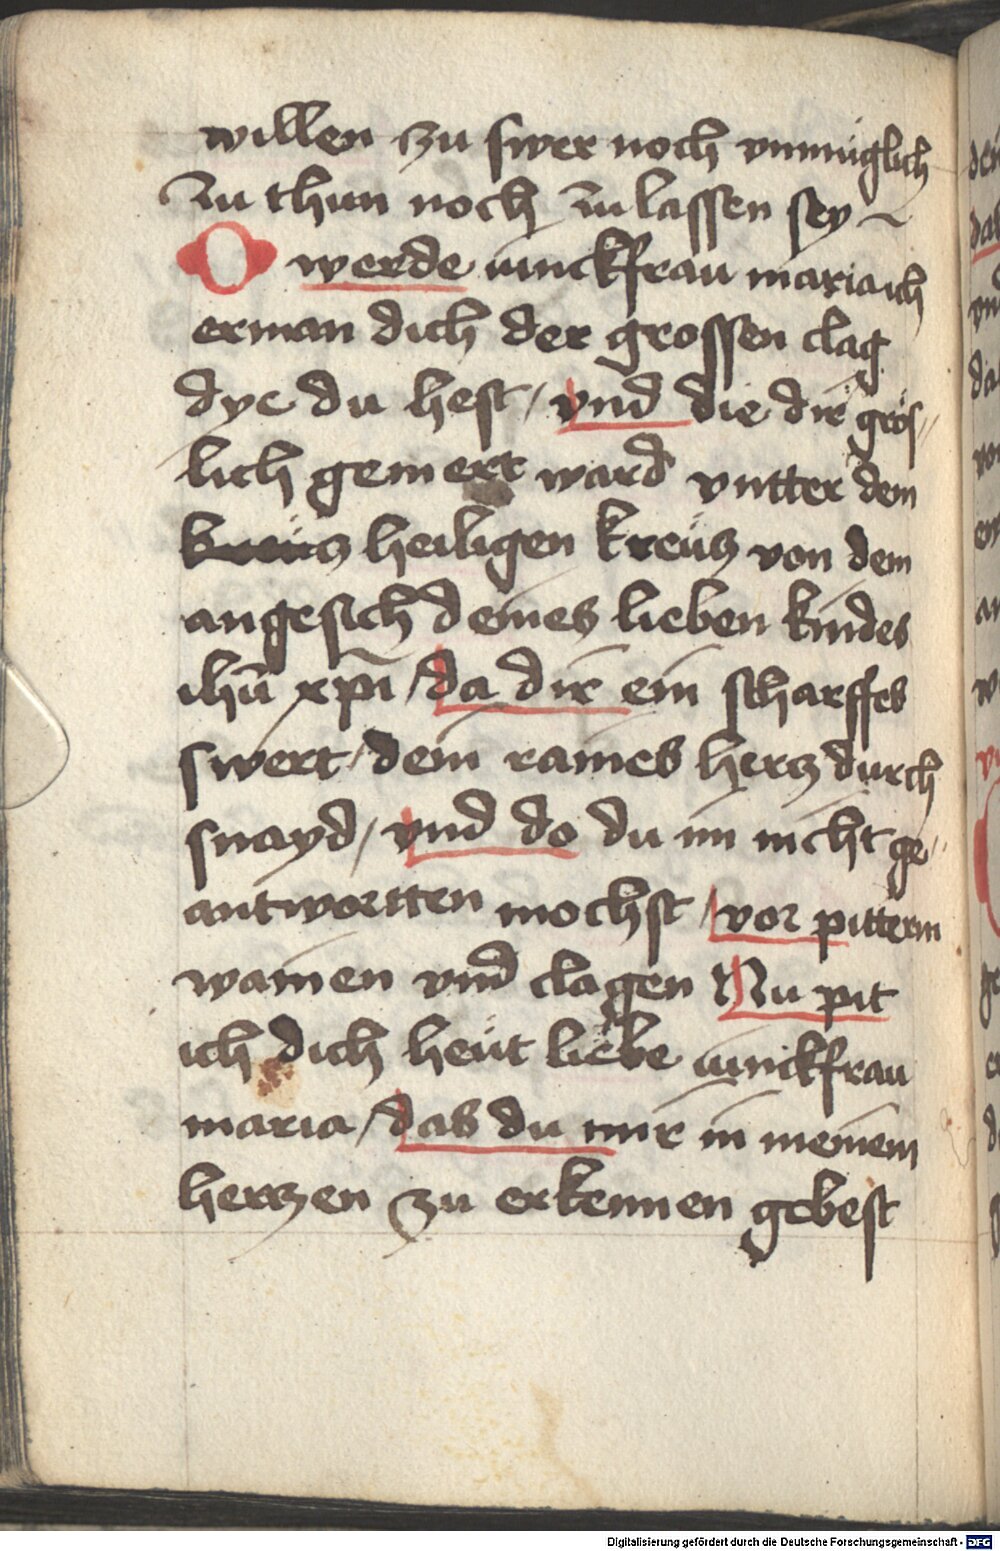 willen zu swer noch vnmüglich
zu thun noch zu lassen sey
O werde iunckfrau maria ich
erman dich der grossen clag
dye du hest / vnd die dir grös„
lich gemert ward vntter dem
heiligen kreütz von dem
angesich deines lieben kindes
ihū xp̄i / da dir ein scharffes
swert / dein raines hertz durch
snayd / vnd do du im nicht ge„
antwortten mochst / vor pitterm
wainen vnd clagen Nu pit
ich dich heüt liebe iunckfrau
maria / das du mir in meinem
hertzen zu erkennen gebest
Digitalisierung gefördert durch die Deutsche Forschungsgemeinschaft - DFG